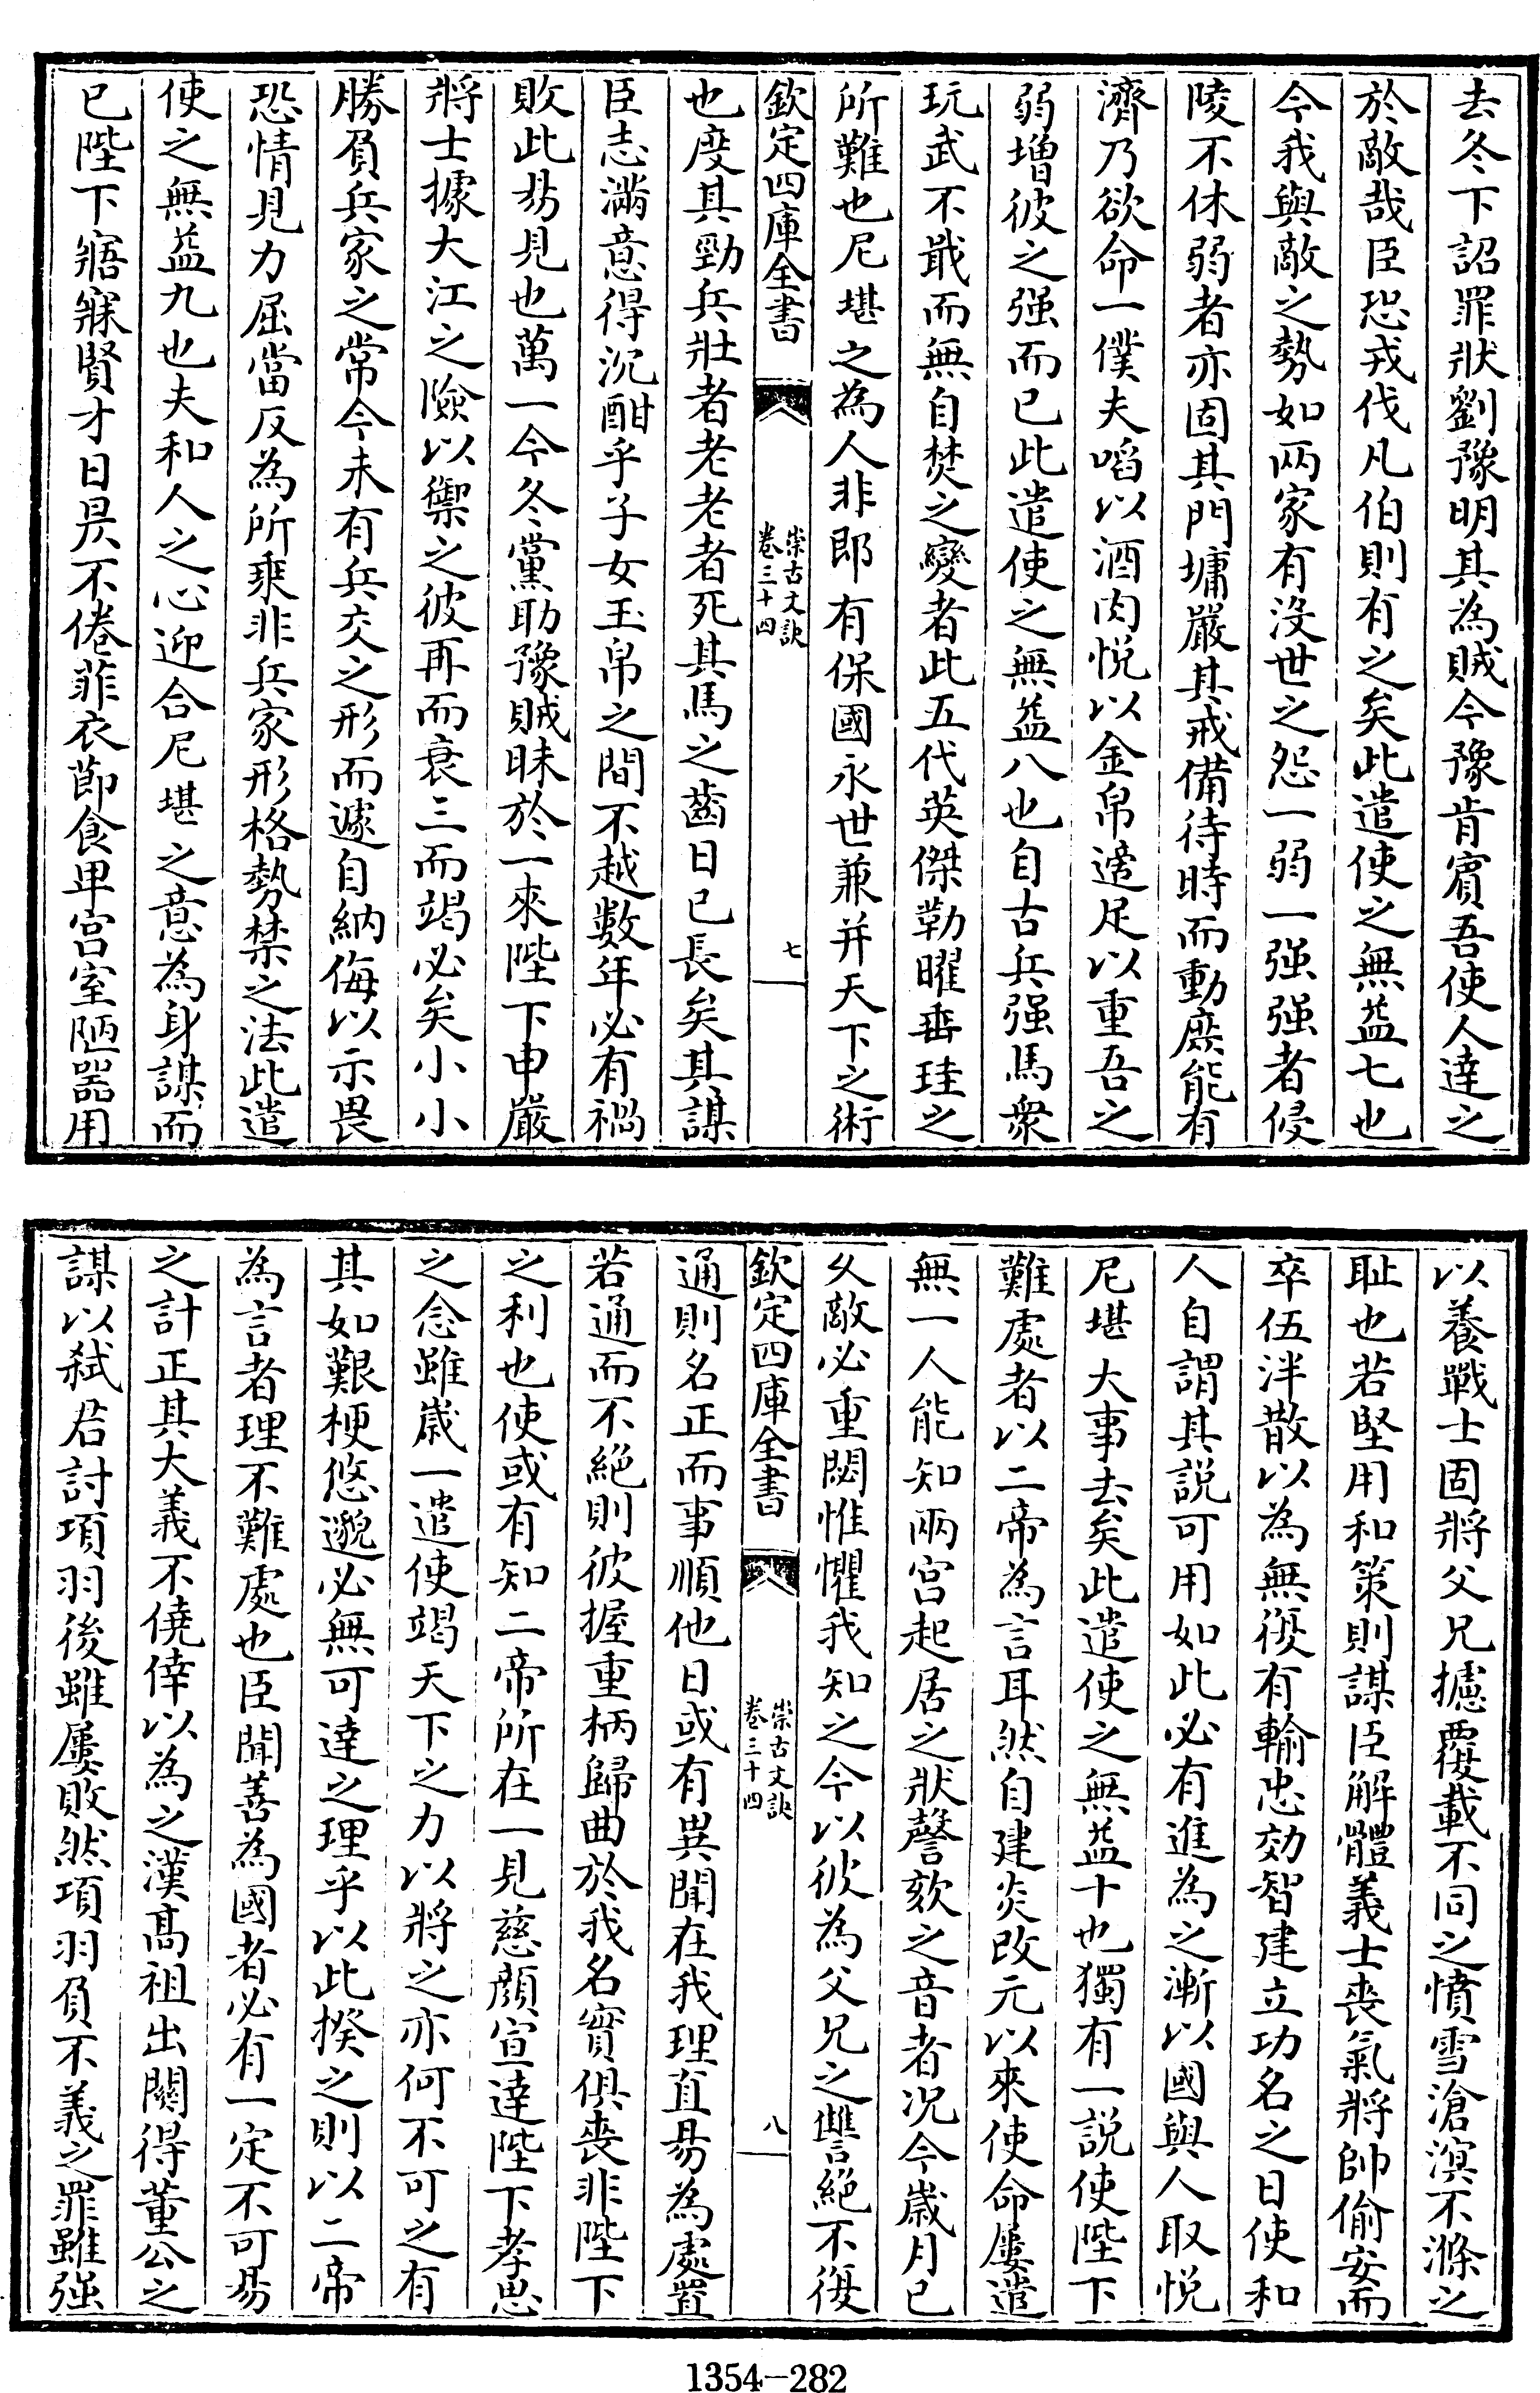 去冬下詔罪狀劉豫明其為賊今豫肯賔吾使人達之
於敵哉臣恐戎伐凡伯則有之矣此遣使之無益七也
今我與敵之勢如兩家有沒世之怨一弱一强强者侵
陵不休弱者亦固其門墉嚴其戒備待時而動庶能有
濟乃欲命一僕夫啗以酒肉悅以金帛遆足以重吾之
弱增彼之强而已此遣使之無益八也自古兵强馬衆
玩武不戢而無自焚之變者此五代英傑勒曜垂珪之
所難也尼堪之為人非即有保國永世兼并天下之術
欽定四庫全書
崇古文訣
卷三十四
七
也度其勁兵壯者老老者死其馬之齒日已長矣其謀
臣志滿意得沉酣乎子女玉帛之間不越數年必有禍
敗此易見也萬一今冬黨助豫賊昧於一來陛下申嚴
將士據大江之險以禦之彼再而衰三而竭必矣小小
勝負兵家之常今未有兵交之形而遽自納侮以示畏
恐情見力屈當反為所乘非兵家形格勢禁之法此遣
使之無益九也夫和人之心迎合尼堪之意為身謀而
已陛下寤寐賢才日昃不倦菲衣節食卑宫室陋器用
以養戰士固將父兄攄覆載不同之憤雪滄溟不滌之
耻也若堅用和策則謀臣解體義士喪氣將帥偷安而
卒伍泮散以為無復有輸忠効智建立功名之日使和
人自謂其説可用如此必有進為之漸以國與人取悅
尼堪大事去矣此遣使之無益十也獨有一説使陛下
難處者以二帝為言耳然自建炎改元以來使命屢遣
無一人能知兩宫起居之狀謦欬之音者况今歲月已
乆敵必重閟惟懼我知之今以彼為父兄之讐絕不復
欽定四庫全書
崇古文訣
卷三十四
八
通則名正而事順他日或有異聞在我理直易為處置
若通而不絕則彼握重柄歸曲於我名實俱喪非陛下
之利也使或有知二帝所在一見慈顔宣達陛下孝思
之念雖歲一遣使竭天下之力以將之亦何不可之有
其如艱梗悠邈必無可達之理乎以此揆之則以二帝
為言者理不難處也臣聞善為國者必有一定不可易
之計正其大義不僥倖以為之漢髙祖出關得董公之
謀以弑君討項羽後雖屢敗然項羽負不義之罪雖强
1354-282